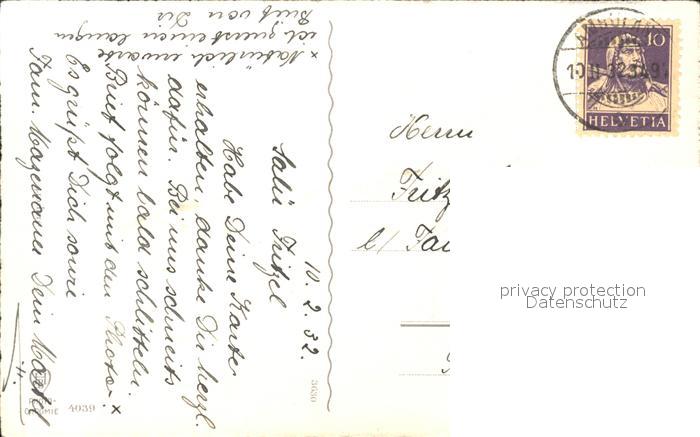 10. 2. 32.
Salü Fritzel
Habe Deine Karte
erhalten, danke Dir herzl.
dafür. Bei uns schneits
können bald schlitteln.
Brief folgt mit den Photo. x
Es grüßt Dich sowie
Fam. Dein
x Natürlich erwarte
ich zuerst einen langen
Brief von Dir
Herrn
Fritz
b/ Fa
10
HELVETIA
AMBULANT
4039
3630
privacy protection
Datenschutz